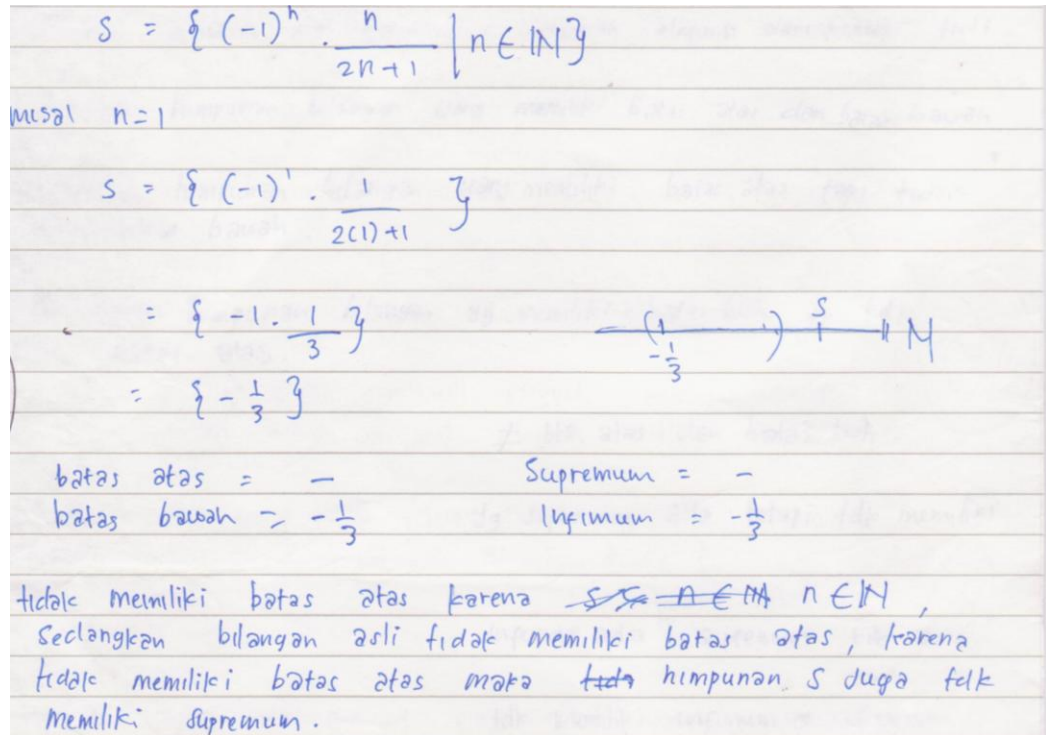 S = { (-1)^n · n/(2n+1) | n ∈ ℕ }
misal n = 1
S = { (-1)^1 · 1/(2(1)+1) }
= { -1 · 1/3 }
= { -1/3 }
( -1/3 ) S ℕ
batas atas = -
batas bawah = -1/3
Supremum = -
Infimum = -1/3
tidak memiliki batas atas karena n ∈ ℕ,
Sedangkan bilangan asli tidak memiliki batas atas, karena
tidak memiliki batas atas maka himpunan S juga tdk
memiliki supremum.